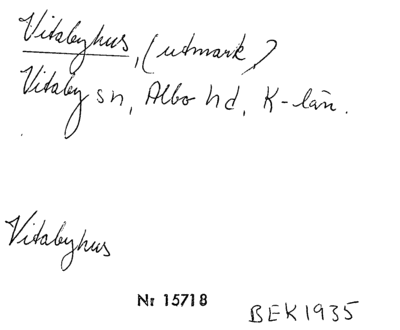 Vitabyhus, (utmark)
Vitaby sn, Albo hd, K-län.
Vitabyhus
Nr 15718
BEK1935